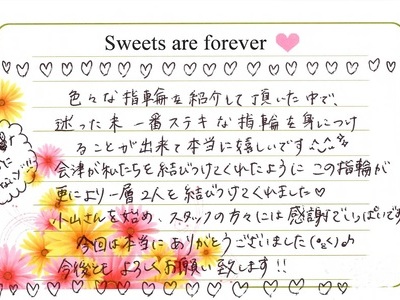 Sweets are forever
色々な指輪を紹介して頂いた中で、
迷った末一番ステキな指輪を身につけ
ることが出来て本当に嬉しいです
会津が私たちを結びつけてくれたように この指輪が
更により一層2人を結びつけてくれました♡
小山さんを始め、スタッフの方々には感謝でいっぱいです
今回は本当にありがとうございました(°≦°)♪
今後ともよろしくお願い致します!!